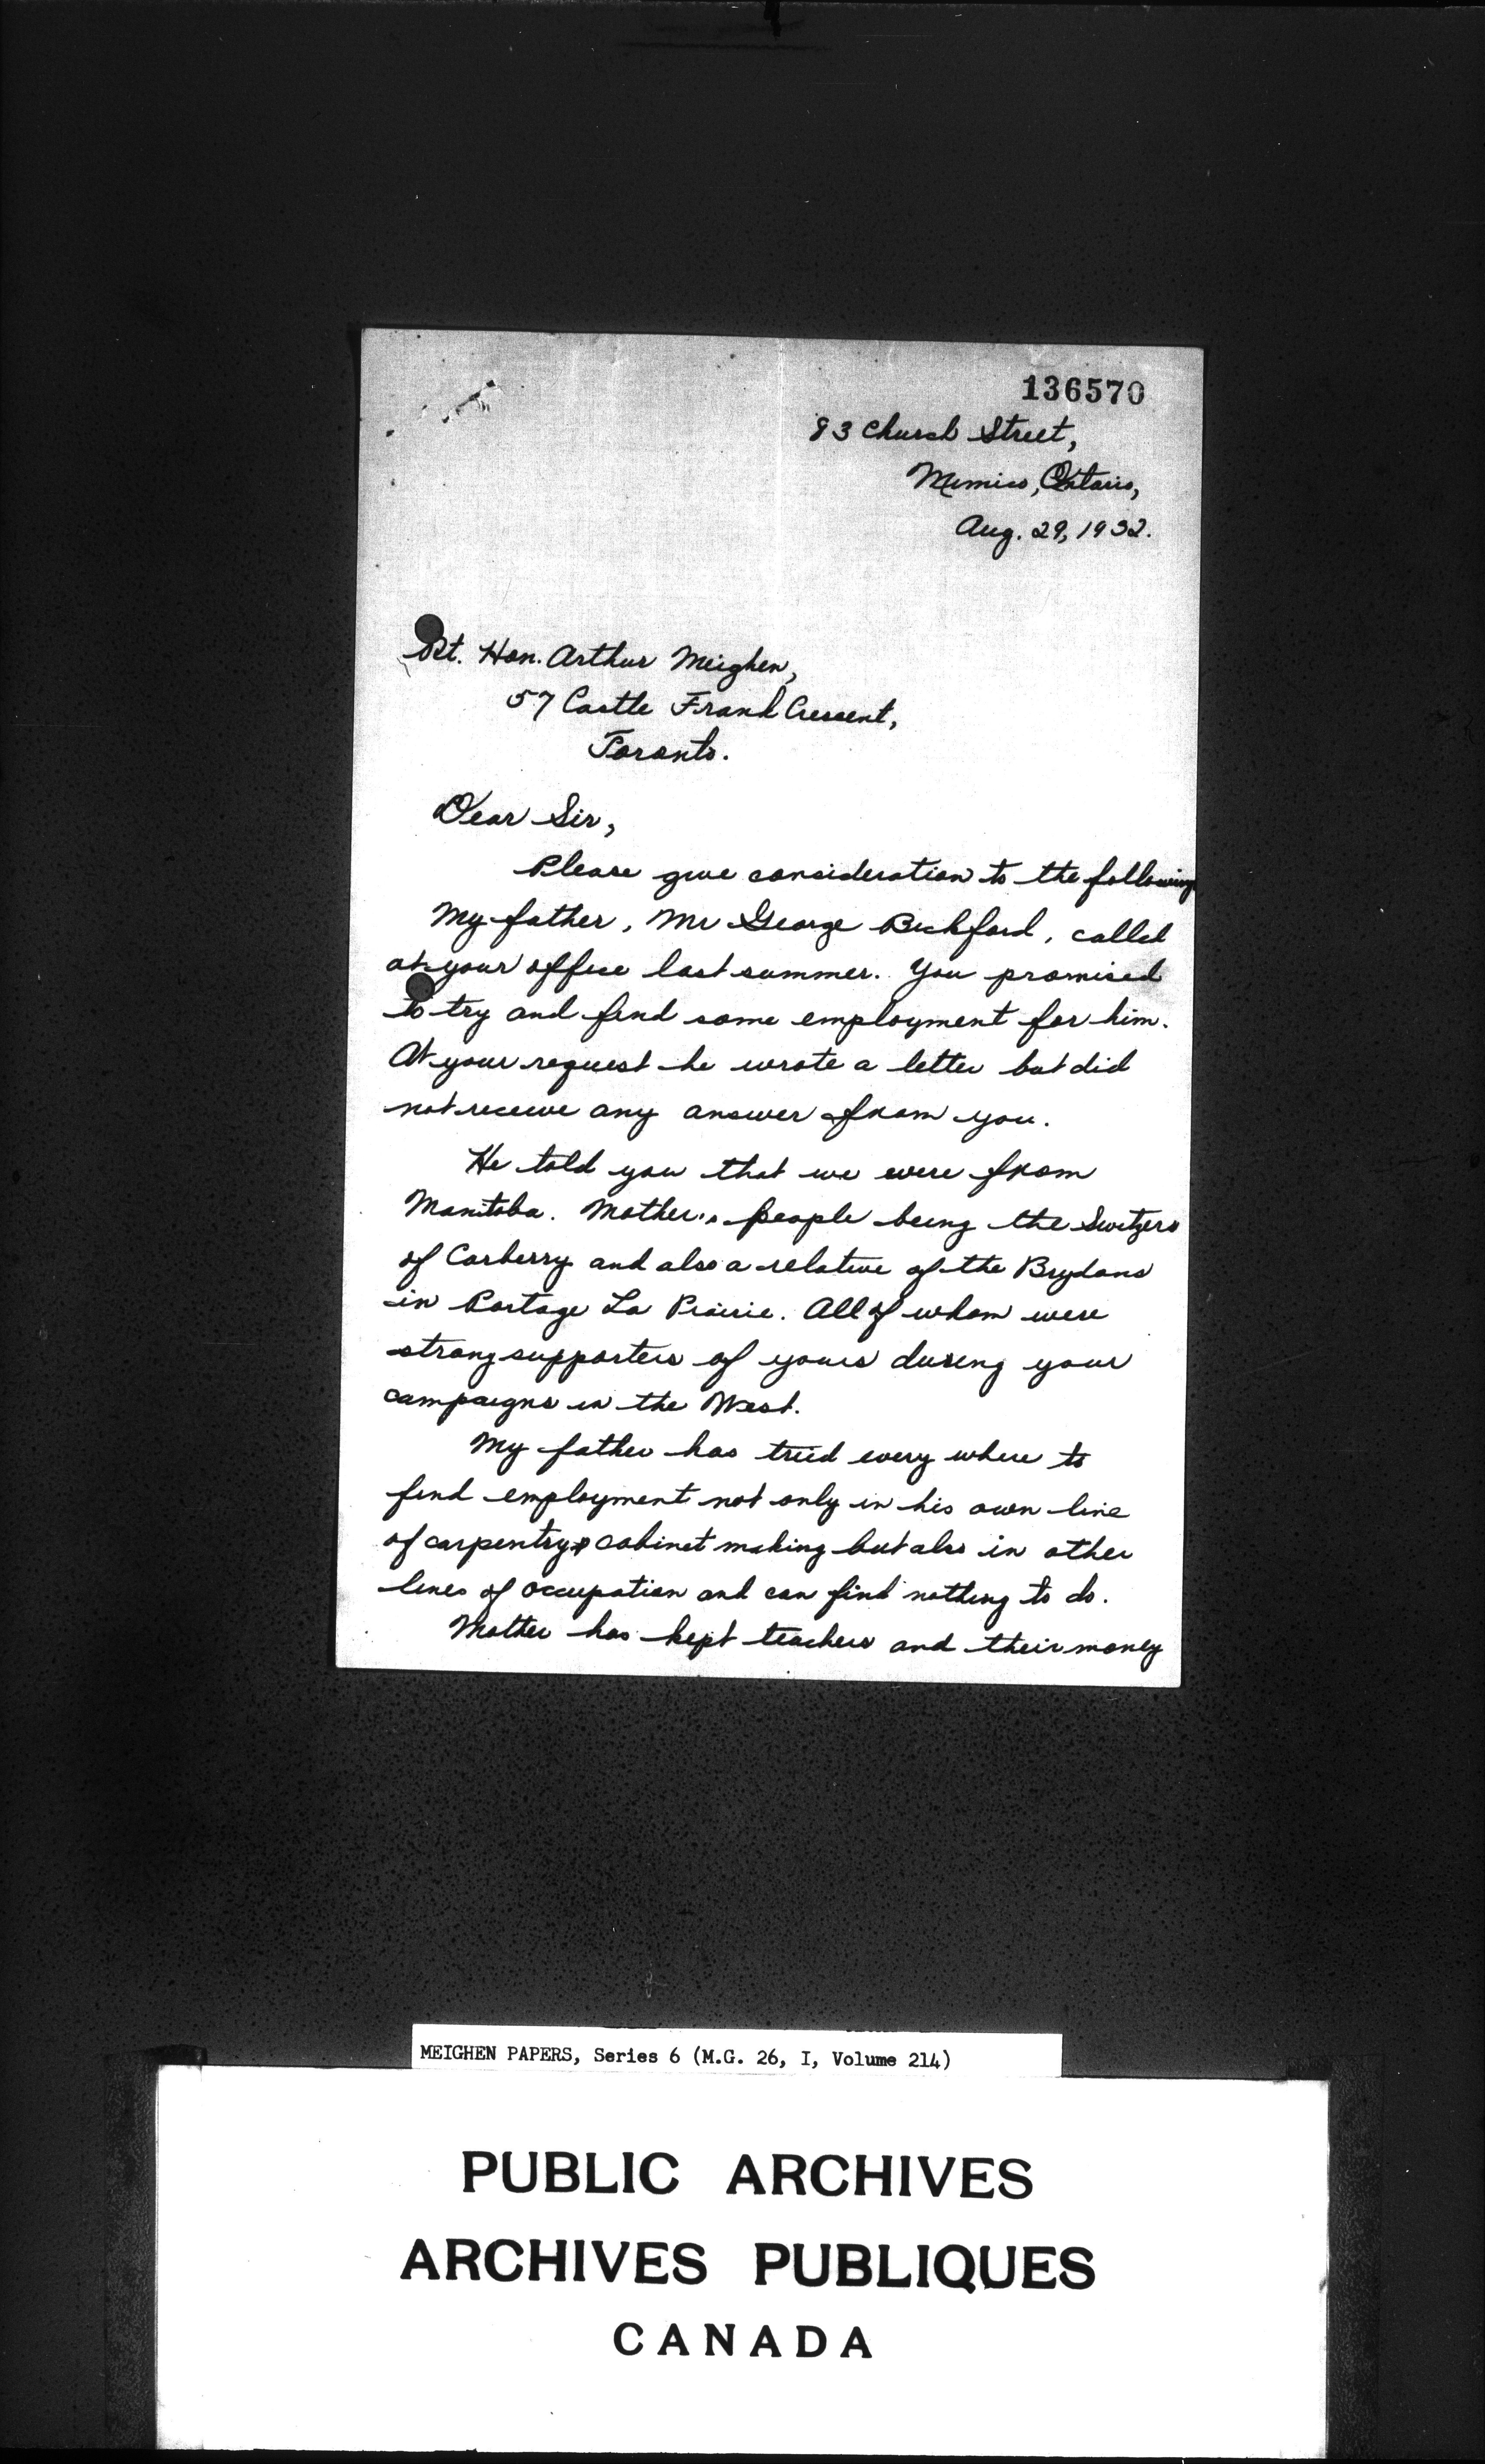 136570
83 Church Street,
Mimico, Ontario,
Aug. 29, 1932.
Rt. Hon. Arthur Meighen,
57 Castle Frank Crescent,
Toronto.
Dear Sir,
Please give consideration to the following
My father, Mr George Bickford, called
at your office last summer. You promised
to try and find some employment for him.
At your request he wrote a letter but did
not receive any answer from you.
He told you that we were from
Manitoba. Mother's people being the Switzers
of Carberry and also a relative of the Brydons
in Portage La Prairie. All of whom were
strong supporters of yours during your
campaigns in the West.
My father has tried every where to
find employment not only in his own line
of carpentry & cabinet making but also in other
lines of occupation and can find nothing to do.
Mother has kept teachers and their money
MEIGHEN PAPERS, Series 6 (M.G. 26, I, Volume 214)
PUBLIC ARCHIVES
ARCHIVES PUBLIQUES
CANADA